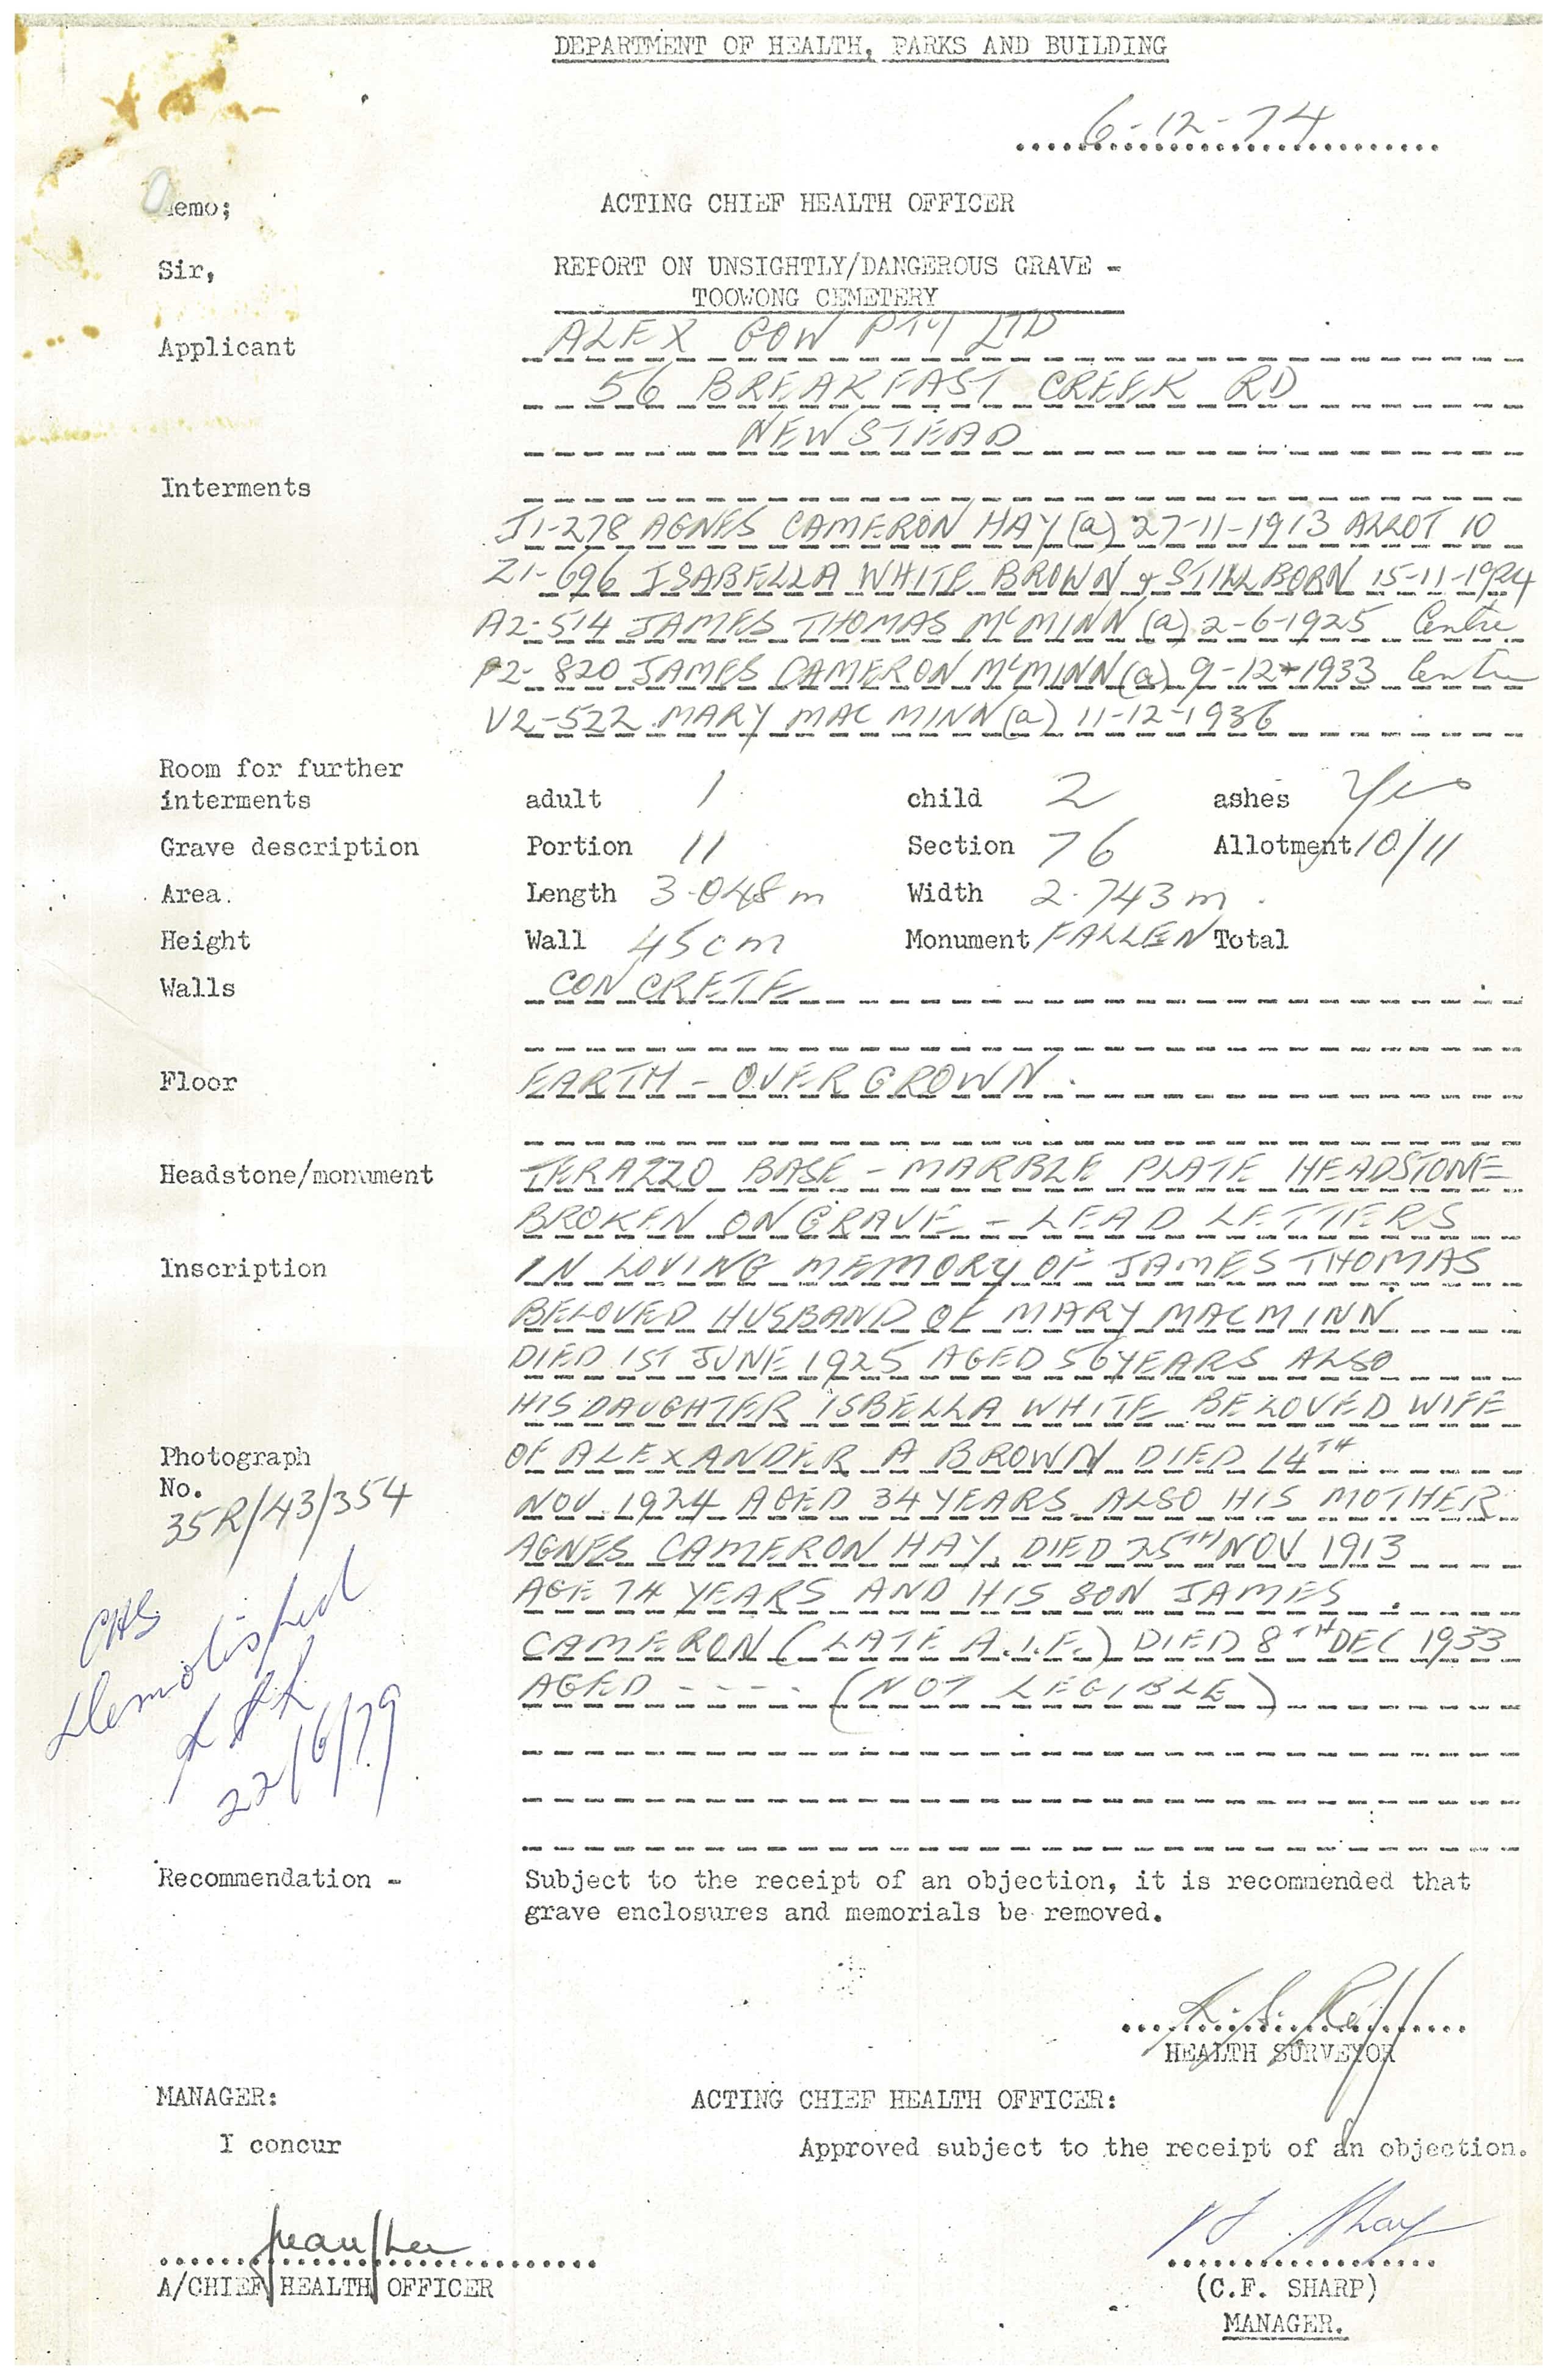 DEPARTMENT OF HEALTH, PARKS AND BUILDING
6-12-74
emo;
ACTING CHIEF HEALTH OFFICER
Sir,
REPORT ON UNSIGHTLY/DANGEROUS GRAVE -
TOOWONG CEMETERY
Applicant ALEX GOW PTY LTD
56 BREAKFAST CREEK RD
NEWSTEAD
Interments
J1-278 AGNES CAMERON HAY (a) 27-11-1913 ALLOT 10
Z1-696 ISABELLA WHITE BROWN & STILLBORN 15-11-1924
A2-514 JAMES THOMAS McMINN (a) 2-6-1925 Centre
P2-820 JAMES CAMERON McMINN (a) 9-12-1933 Centre
V2-522 MARY MAC MINN (a) 11-12-1936
Room for further
interments adult 1 child 2 ashes Yes
Grave description Portion 11 Section 76 Allotment 10/11
Area. Length 3.048 m Width 2.743 m.
Height Wall 45cm Monument FALLEN Total
Walls CONCRETE
Floor EARTH - OVERGROWN.
Headstone/monument TERAZZO BASE - MARBLE PLATE HEADSTONE
BROKEN ON GRAVE - LEAD LETTERS
Inscription IN LOVING MEMORY OF JAMES THOMAS
BELOVED HUSBAND OF MARY MACMINN
DIED 1ST JUNE 1925 AGED 56 YEARS ALSO
HIS DAUGHTER ISBELLA WHITE BELOVED WIFE
Photograph OF ALEXANDER A BROWN DIED 14TH
No. NOV. 1924 AGED 34 YEARS ALSO HIS MOTHER
35R/43/354
AGNES CAMERON HAY. DIED 25TH NOV 1913
AGE 74 YEARS AND HIS SON JAMES
CAMERON (LATE A.I.F.) DIED 8TH DEC 1933
AGED - - - - (NOT LEGIBLE)
Demolished
22/6/79
Recommendation - Subject to the receipt of an objection, it is recommended that
grave enclosures and memorials be removed.
HEALTH SURVEYOR
MANAGER: ACTING CHIEF HEALTH OFFICER:
I concur Approved subject to the receipt of an objection.
A/CHIEF HEALTH OFFICER (C.F. SHARP)
MANAGER.